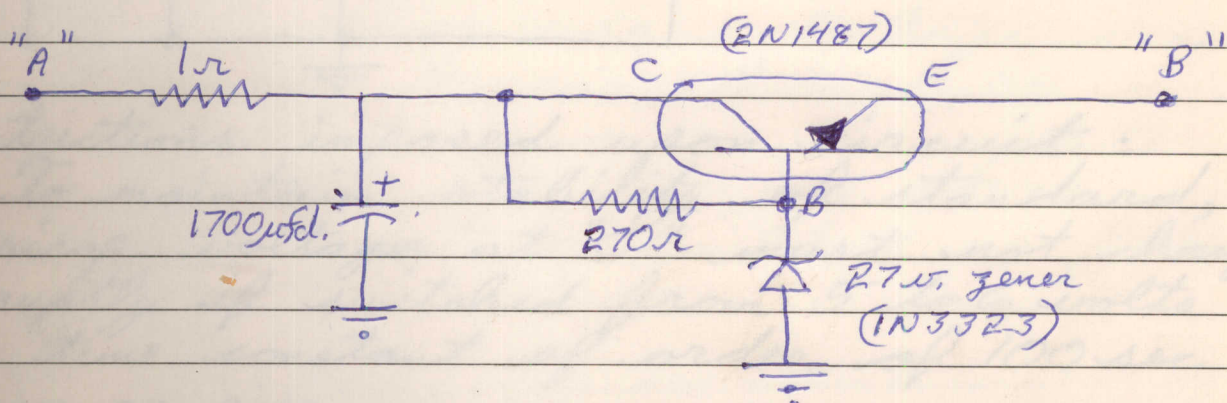 (2N1487)
"A" 1Ω C E "B"
+
1700μfd. 270Ω B
27v. zener
(1N3323)